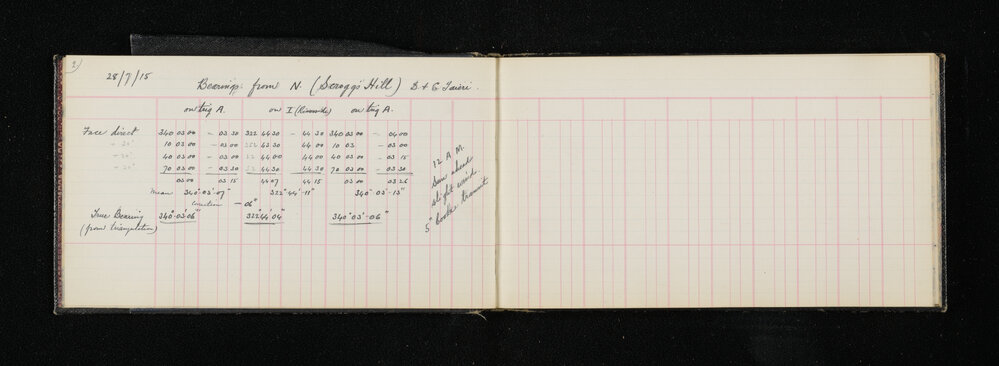 2)
28/7/15
Bearings from N. (Scroggs Hill) D. & E Taieri.
on trig A. on I (Kuri ) on trig A.
Face direct 340 03 00 - 03 30 322 44 30 - 44 30 340 03 00 - 04 00
- 30° 10 03 00 - 03 00 352 43 30 44 00 10 03 - 03 00
- 30° 40 03 00 - 03 00 22 44 00 44 00 40 03 00 - 03 15
- 30° 70 03 00 - 03 30 52 44 30 44 30 70 03 00 - 03 30
03 00 03 15 44 07 44 15 03 00 03 26
mean 340° 03' 07" 322° 44' 11" 340° 03' 13"
Correction - 06"
True Bearing 340° 03' 06" 322° 44' 04" 340° 03' - 06"
(from triangulation)
12 A.M.
Sun ahead
slight wind
5" Cooke transit